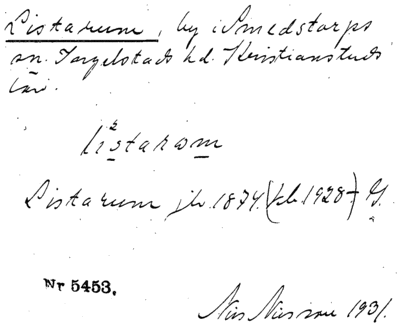 Listarum, by i Smedstorps
sn. Ingelstads hd. Kristianstads
län.
li²starom
Listarum jb. 1874. (kb. 1928-) G.
Nr 5453.
Nils Nilsson 1931.